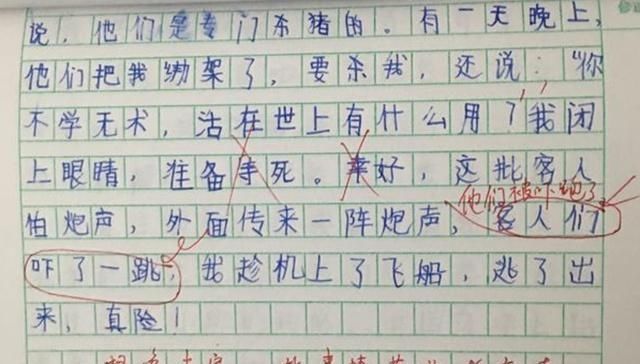 说，他们是专门杀猪的。有一天晚上，
他们把我绑架了，要杀我，还说："你
不学无术，活在世上有什么用？"我闭
上眼睛，准备等死。幸好，这批客人
他们被吓跑了
怕炮声，外面传来一阵炮声，客人们
吓了一跳，我趁机上了飞船，逃了出
来，真险！